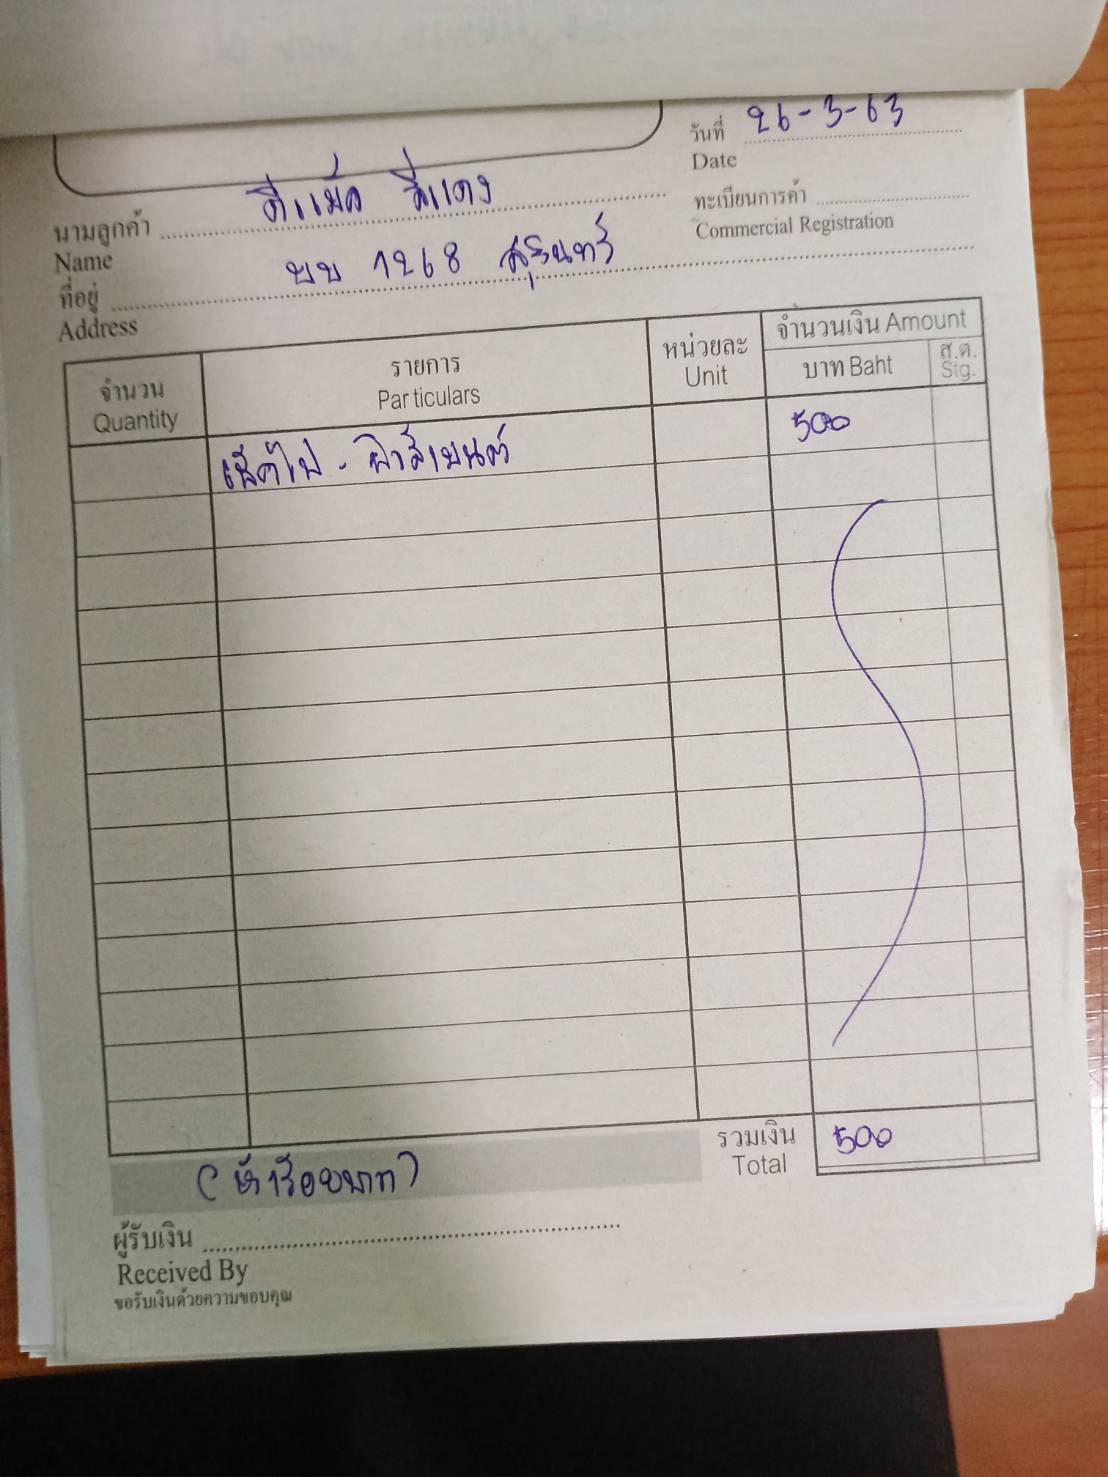 วันที่ 26-3-63
Date
นามลูกค้า ดีแม็ค สีแดง
Name
ทะเบียนการค้า
Commercial Registration
ที่อยู่ บบ 1268 สุรินทร์
Address
จำนวน
Quantity
รายการ
Particulars
หน่วยละ
Unit
จำนวนเงิน Amount
บาท Baht
ส.ต.
Stg.
เช็คไฟ - ผ้าสีเบนต์ 500
รวมเงิน 500
Total
(ห้าร้อยบาท)
ผู้รับเงิน
Received By
ขอรับเงินด้วยความขอบคุณ